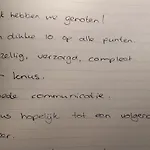 t hebben we genoten!
n dikke 10 op alle punten.
zellig, verzorgd, compleet
knus.
ede communicatie.
us hopelijk tot een volgend
er.